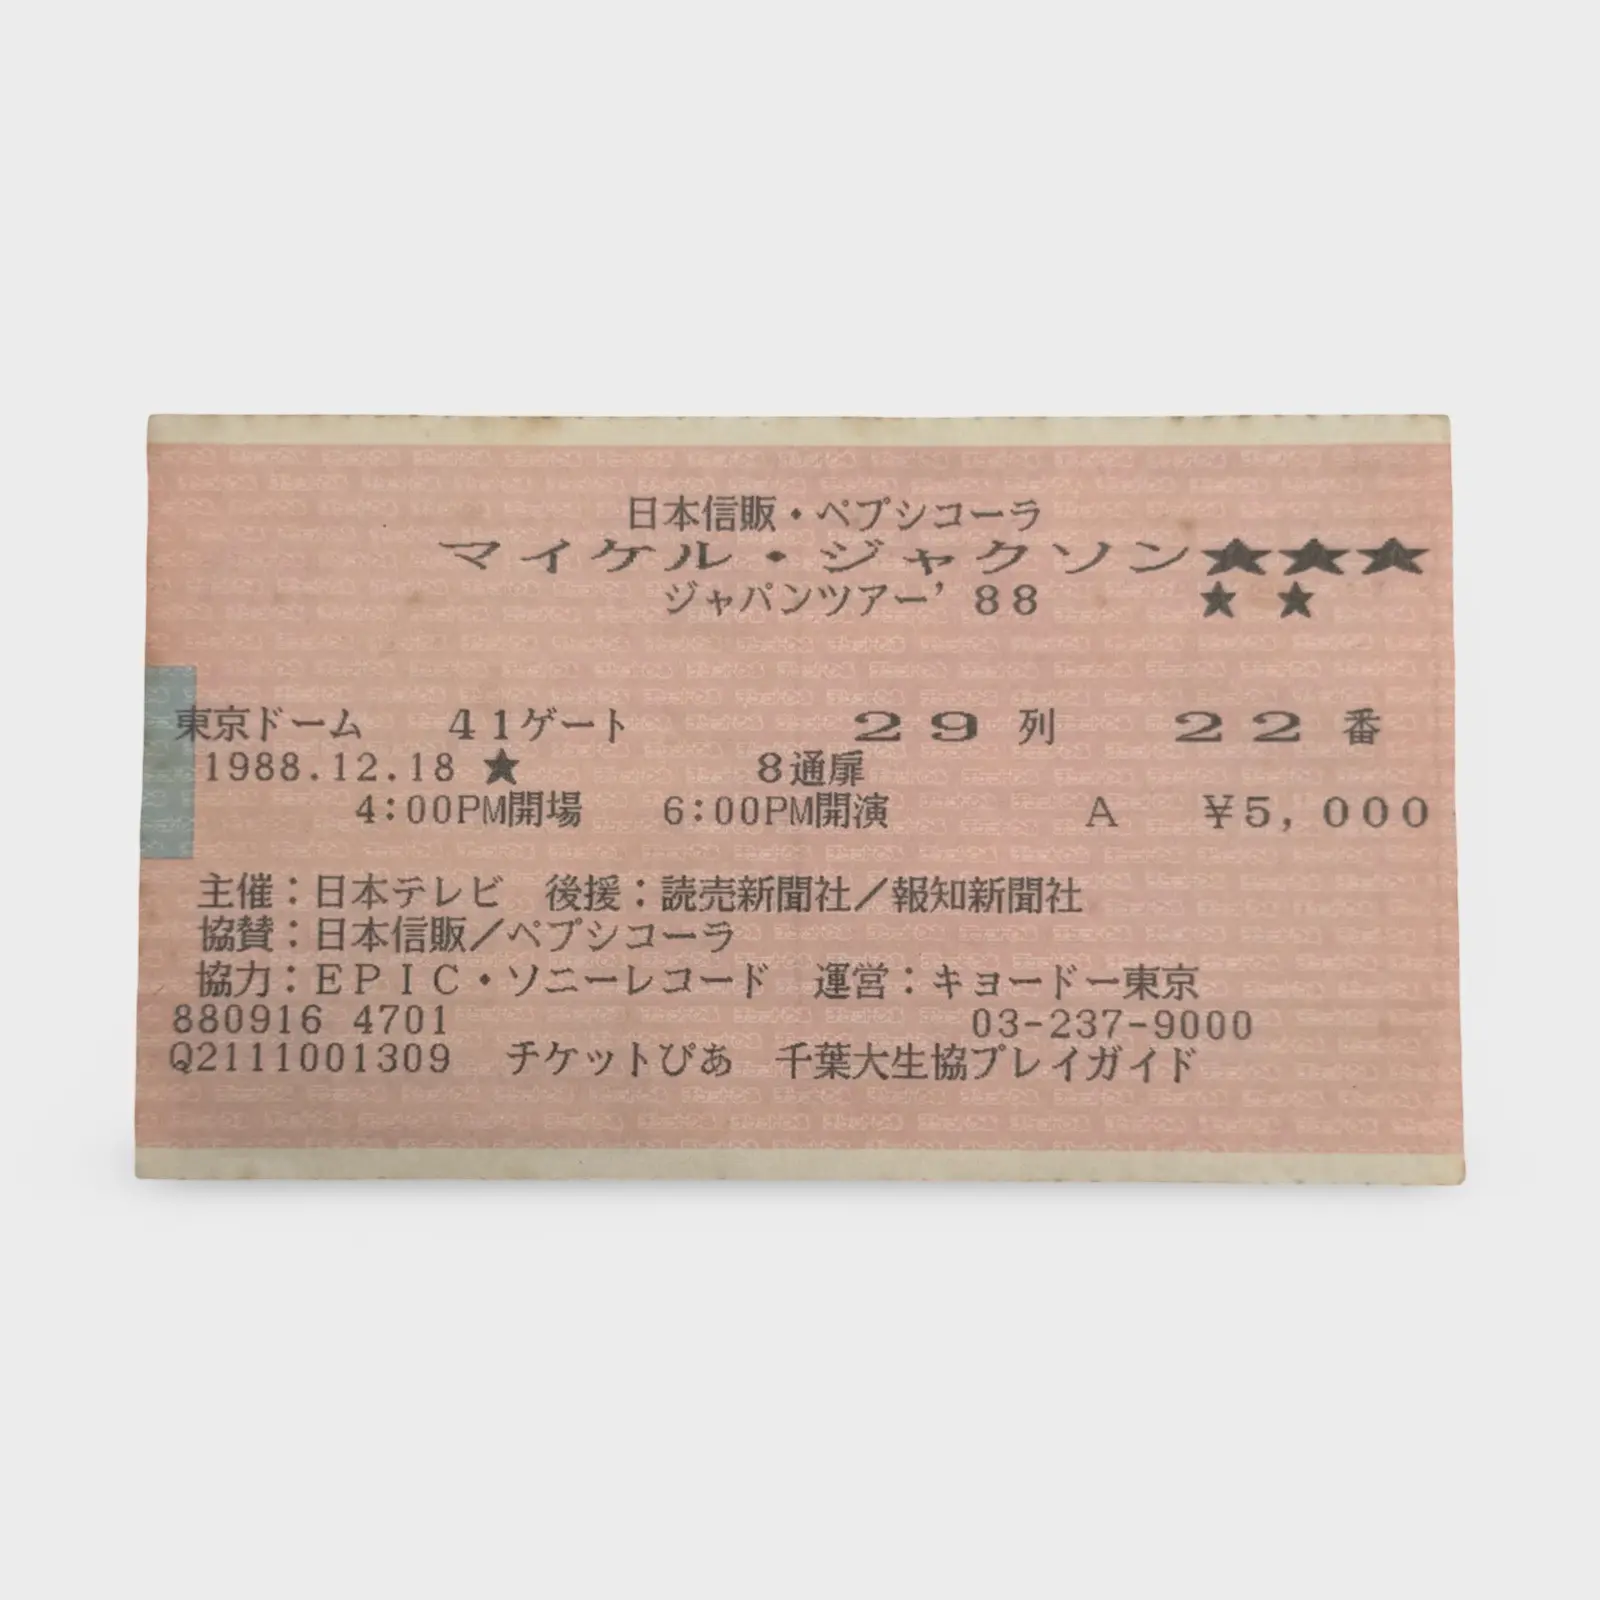 日本信販・ペプシコーラ
マイケル・ジャクソン★★★
ジャパンツアー’88 ★ ★
東京ドーム 41ゲート 29列 22番
1988.12.18 ★ 8通扉
4:00PM開場 6:00PM開演 A ¥5,000
主催：日本テレビ 後援：読売新聞社／報知新聞社
協賛：日本信販／ペプシコーラ
協力：EPIC・ソニーレコード 運営：キョードー東京
880916 4701 03-237-9000
Q2111001309 チケットぴあ 千葉大生協プレイガイド